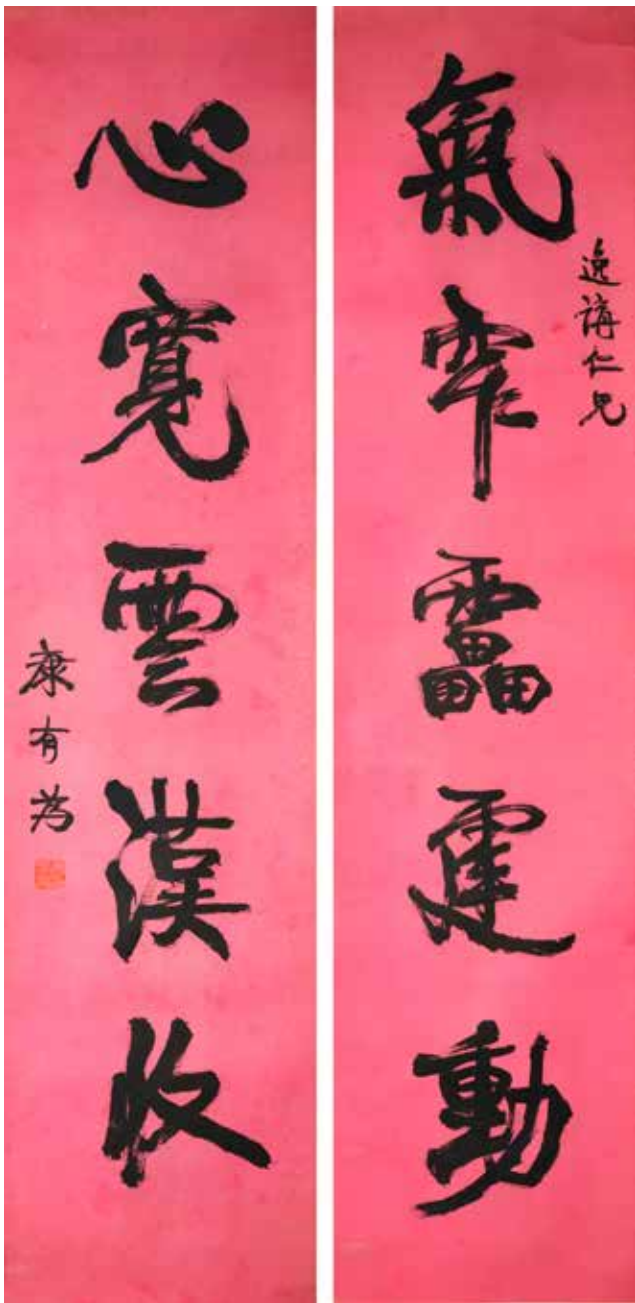 氣窄靁霆動
逸誨仁兄
心寬雲漢收
康有為